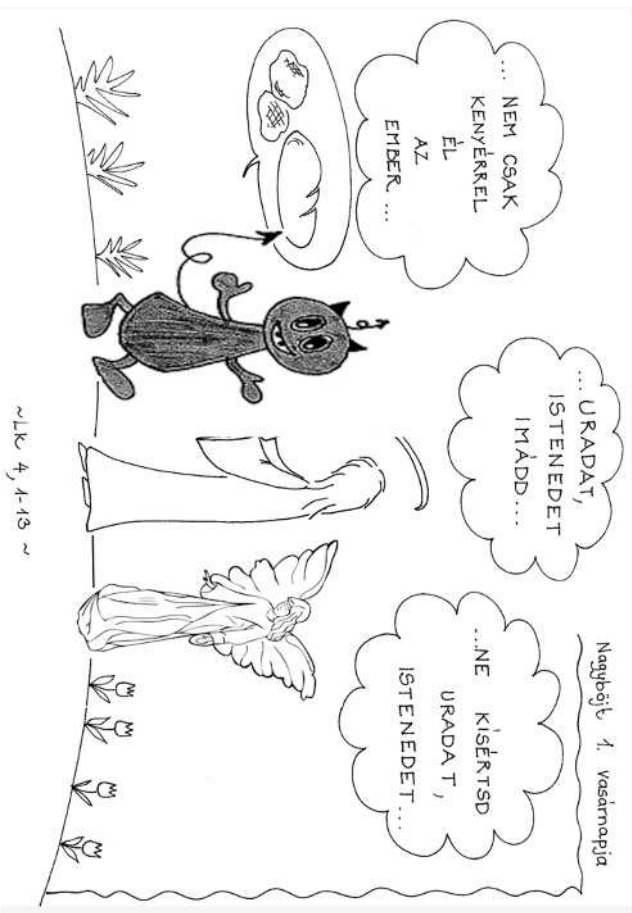 Nagyböjt 1. vasárnapja
... NEM CSAK
KENYÉRREL
ÉL
AZ
EMBER ...
... URADAT,
ISTENEDET
IMÁDD...
...NE KÍSÉRTSD
URADAT,
ISTENEDET....
~Lk 4, 1-13 ~